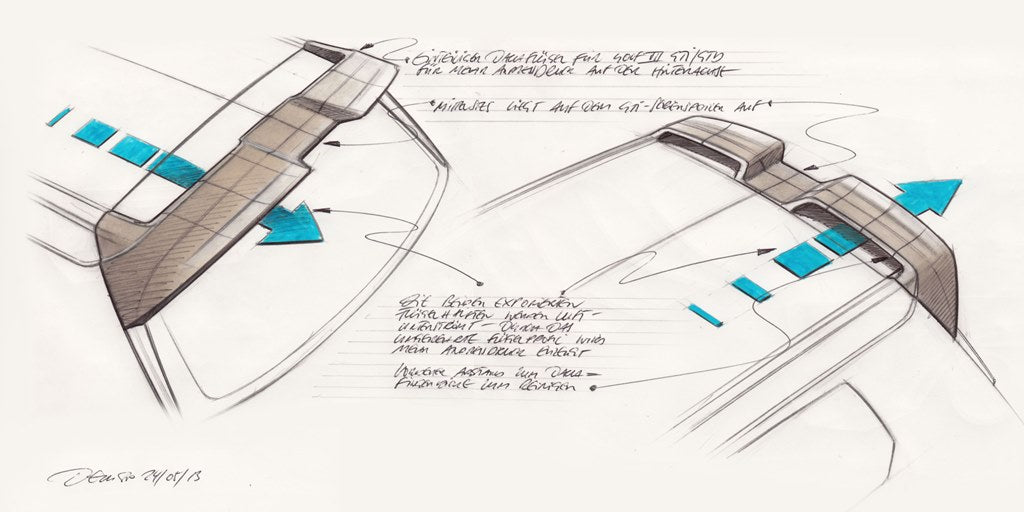 EINTEILIGER DACHFLÜGEL FÜR GOLF III GTI/GTD
FÜR MEHR ANPRESSDRUCK AUF DER HINTERACHSE
MITTELTEIL LIEGT AUF DEM GTI-SERIENSPOILER AUF
DIE BEIDEN EXPONIERTEN
FLÜGELHÄLFTEN WERDEN LUFT-
UNTERSTRÖMT – DURCH DAS
UMGEKEHRTE FLÜGELPROFIL WIRD
MEHR ANPRESSDRUCK ERZEUGT
ABSTAND ZUM DACH =
ZUM REINIGEN
24/05/13